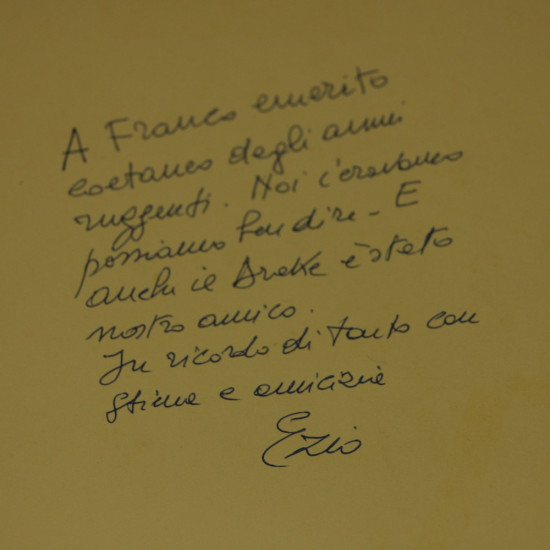 A Franco emerito
coetaneo degli anni
ruggenti. Noi c'eravamo
possiamo ben dire - E
anche il Drake è stato
nostro amico.
In ricordo di tanto con
stima e amicizia
Ezio